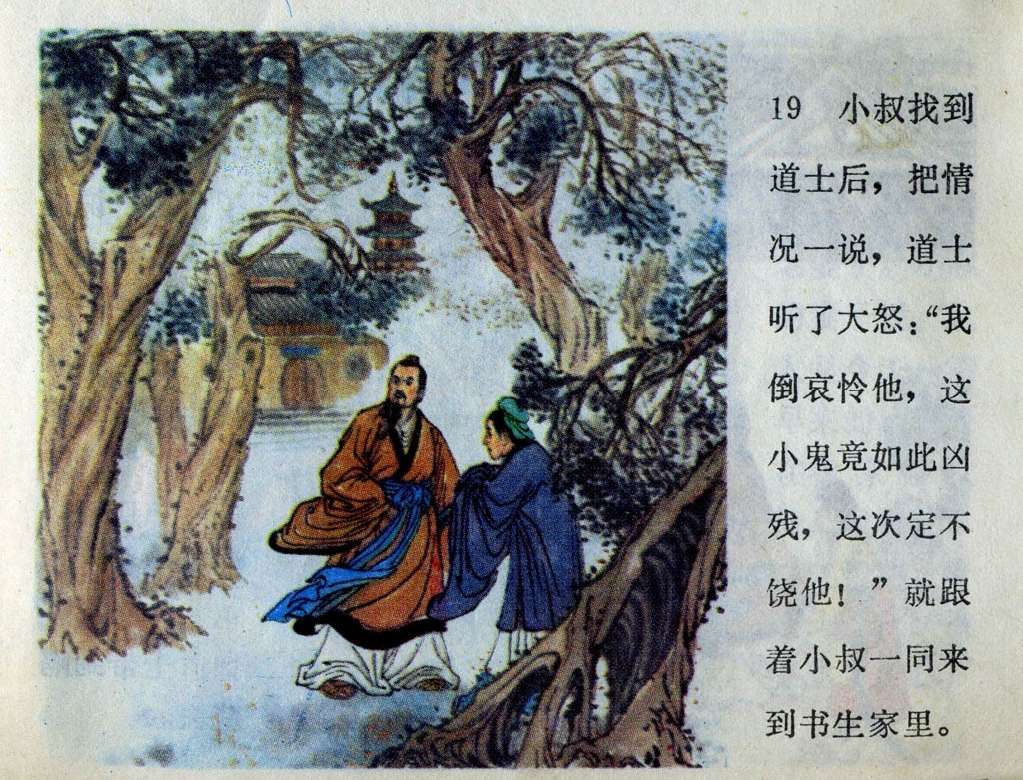 19 小叔找到
道士后，把情
况一说，道士
听了大怒：“我
倒哀怜他，这
小鬼竟如此凶
残，这次定不
饶他！”就跟
着小叔一同来
到书生家里。